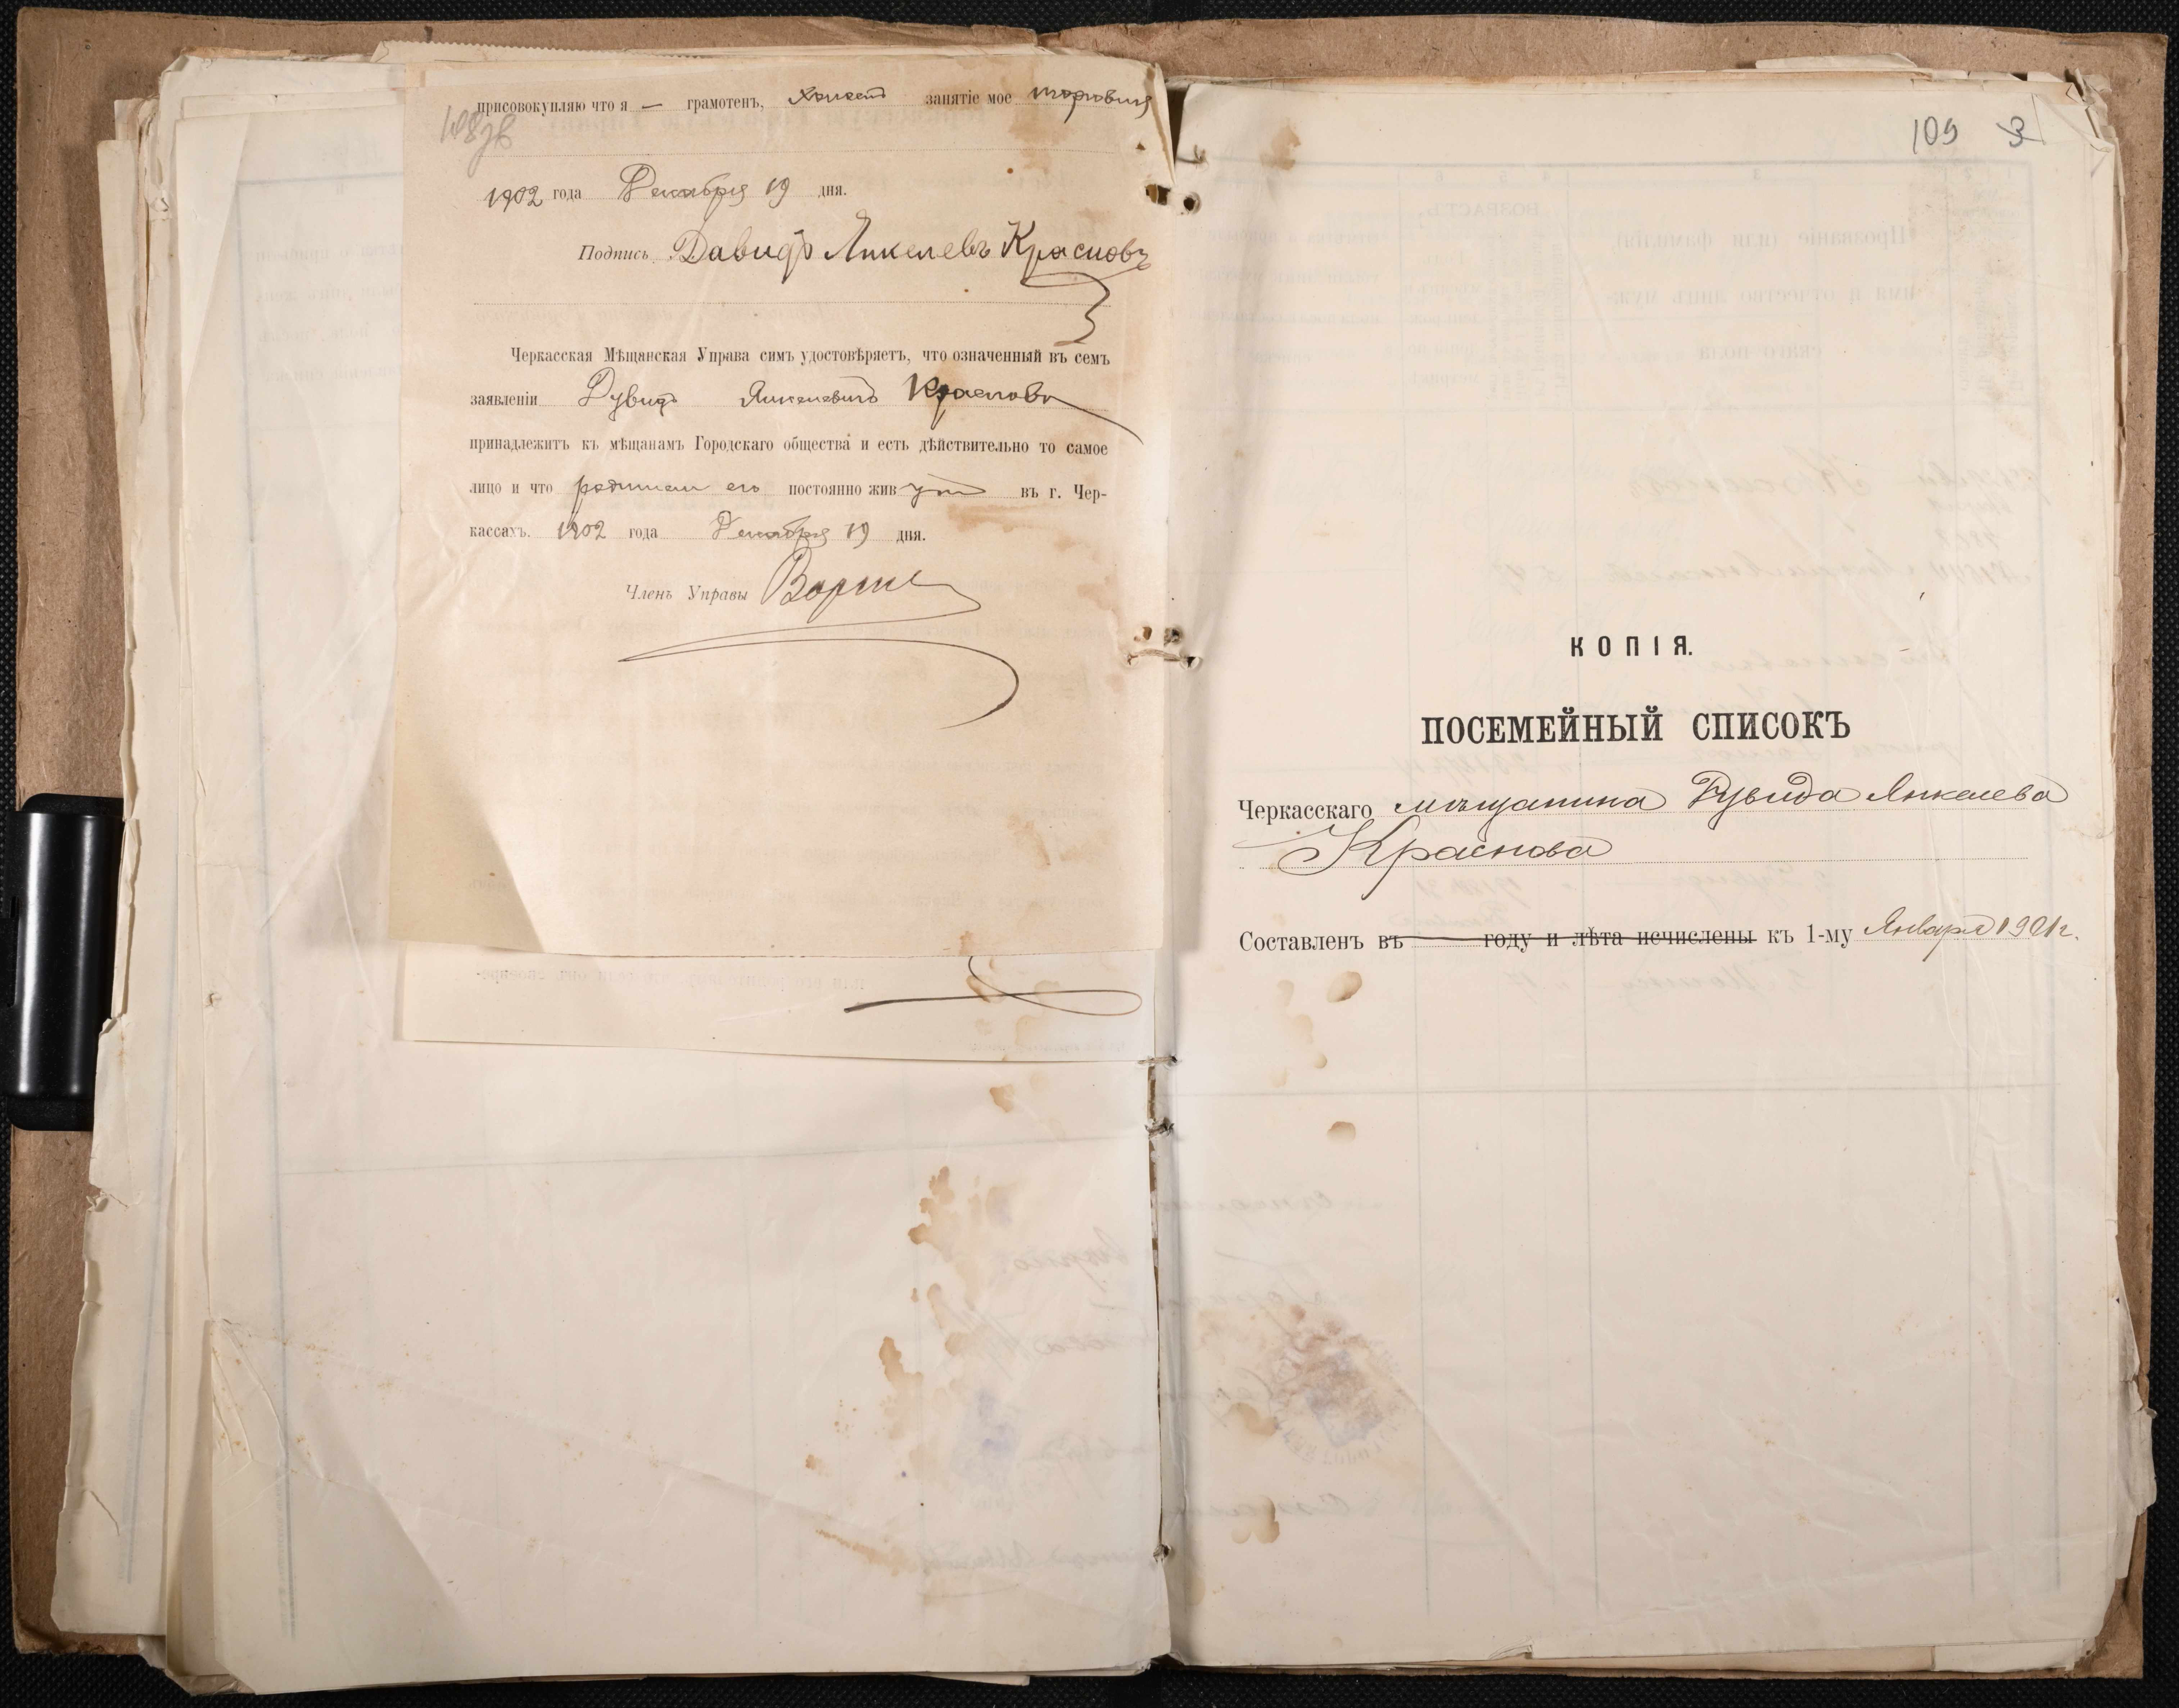 присовокупляю что я — грамотенъ, холостъ занятіе мое торговля
108об
1902 года Декабря 19 дня.
Подпись Давидъ Янкелевъ Красновъ
Черкасская Мѣщанская Управа симъ удостовѣряетъ, что означенный въ семъ
заявленіи Дувидъ Янкелевичъ Красновъ
принадлежитъ къ мѣщанамъ Городскаго общества и есть дѣйствительно то самое
лицо и что родители его постоянно живутъ въ г. Чер-
кассахъ. 1902 года Декабря 19 дня.
Членъ Управы
109 3
КОПІЯ.
ПОСЕМЕЙНЫЙ СПИСОКЪ
Черкасскаго мѣщанина Дувида Янкелева
Краснова
Составленъ въ году и лѣта исчислены къ 1-му Января 1901 г.